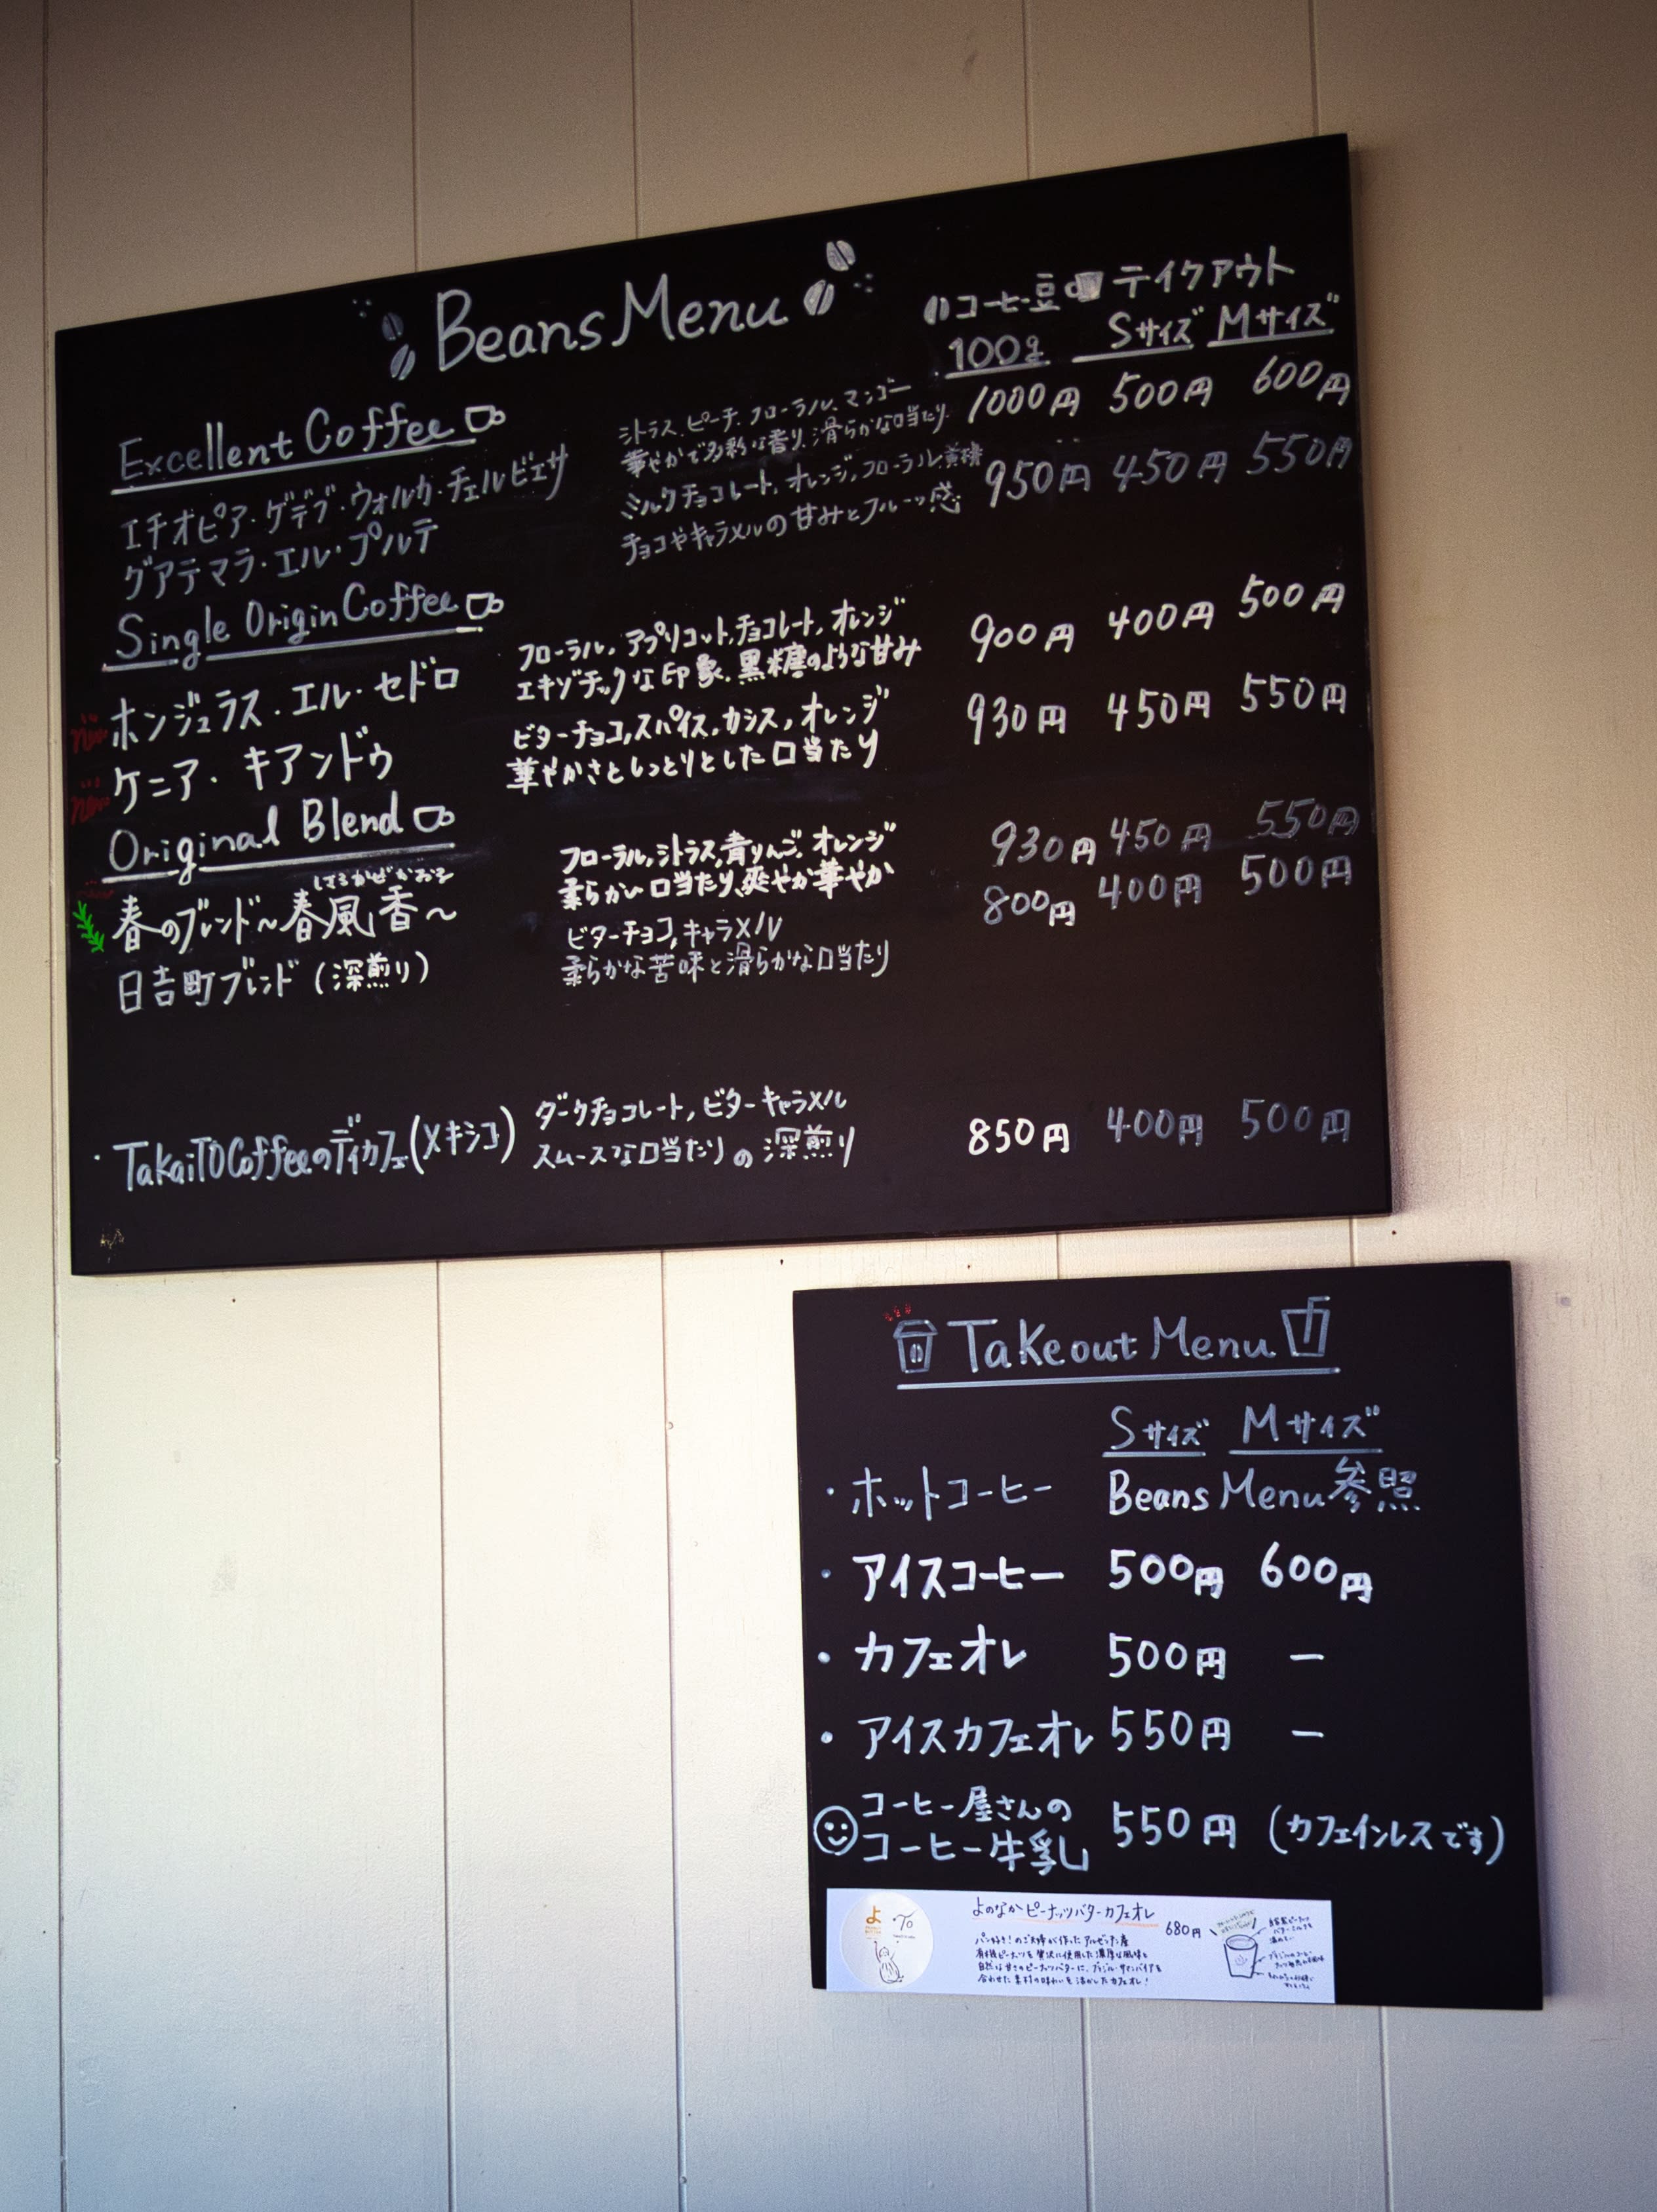 Beans Menu
コーヒー豆 テイクアウト
100g Sサイズ Mサイズ
Excellent Coffee
エチオピア・ゲデブ・ウォルカ・チェルビェサ
シトラス、ピーチ、フローラル、マンゴー
華やかで多彩な香り、滑らかな口当たり
1000円 500円 600円
グアテマラ・エル・プルテ
ミルクチョコレート、オレンジ、フローラル、黄桃
チョコやキャラメルの甘みとフルーツ感
950円 450円 550円
Single Origin Coffee
new ホンジュラス・エル・セドロ
フローラル、アプリコット、チョコレート、オレンジ
エキゾチックな印象、黒糖のような甘み
900円 400円 500円
new ケニア・キアンドゥ
ビターチョコ、スパイス、カシス、オレンジ
華やかさとしっとりとした口当たり
930円 450円 550円
Original Blend
春のブレンド〜春風香〜
フローラル、シトラス、青りんご、オレンジ
柔らかい口当たり、爽やか華やか
930円 450円 550円
日吉町ブレンド(深煎り)
ビターチョコ、キャラメル
柔らかな苦味と滑らかな口当たり
800円 400円 500円
・TakaiTOCoffeeのディカフェ(メキシコ)
ダークチョコレート、ビターキャラメル
スムースな口当たりの深煎り
850円 400円 500円
Takeout Menu
Sサイズ Mサイズ
・ホットコーヒー Beans Menu参照
・アイスコーヒー 500円 600円
・カフェオレ 500円 ー
・アイスカフェオレ 550円 ー
コーヒー屋さんの
コーヒー牛乳 550円 (カフェインレスです)
よのなかピーナッツバターカフェオレ
680円
パン好き!のご夫婦が作ったアルゼンチン産
有機ピーナッツを贅沢に使用した濃厚な風味と
自然な甘さのピーナッツバターに、ブラジル・サンバイアを
合わせた素材の味わいを活かしたカフェオレ!
よ
To